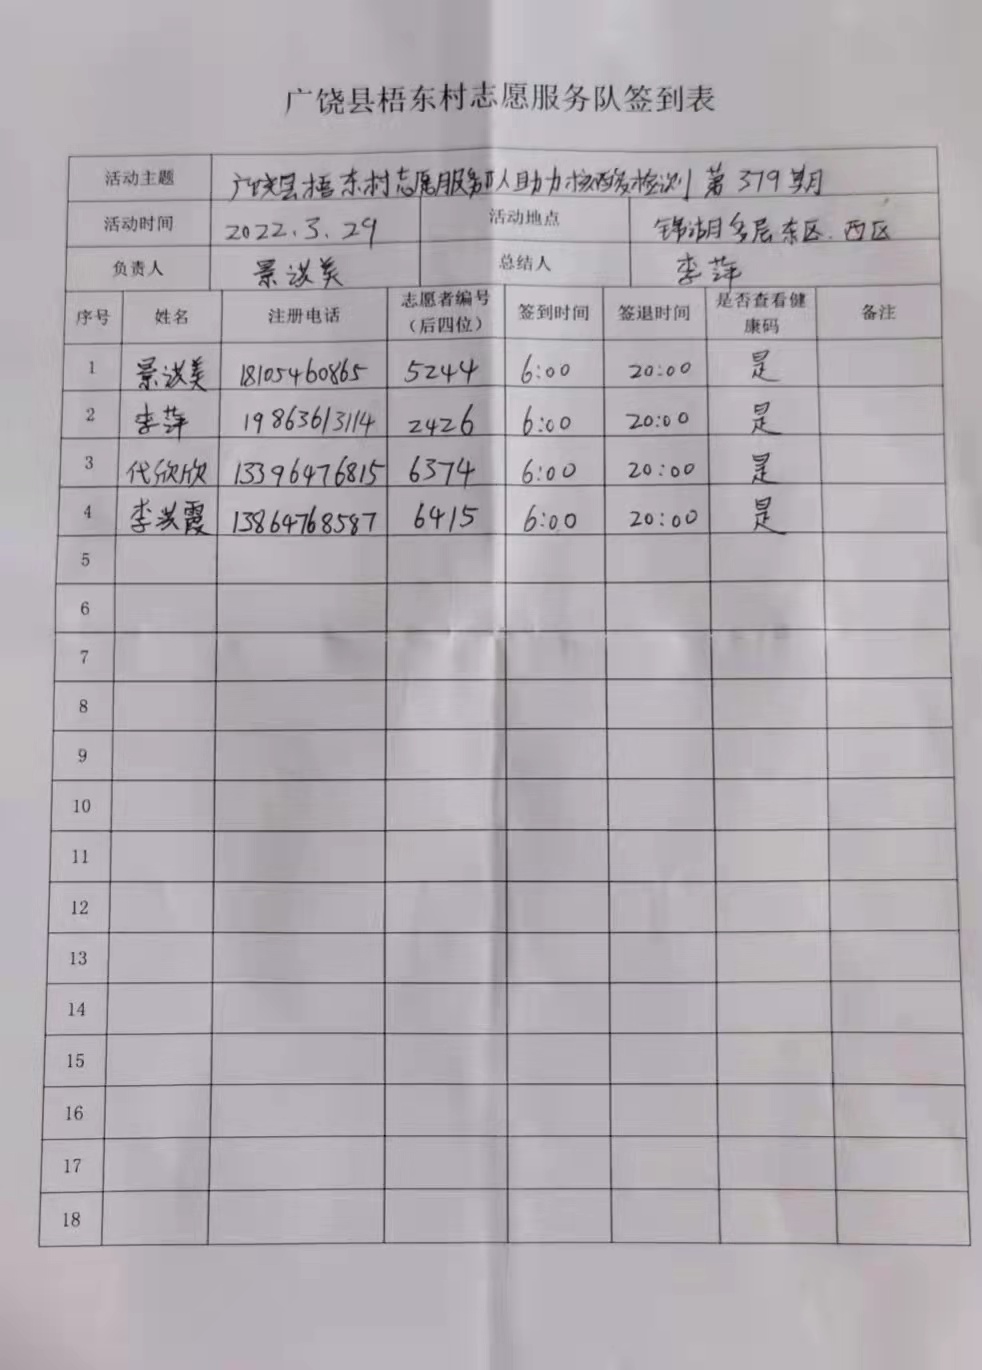 广饶县梧东村志愿服务队签到表
活动主题 广饶县梧东村志愿服务队助力核酸检测第379期
活动时间 2022.3.29 活动地点 锦湖多层东区.西区
负责人 景 美 总结人 李萍
序号 姓名 注册电话 志愿者编号（后四位） 签到时间 签退时间 是否查看健康码 备注
1 景 美 18105460865 5244 6:00 20:00 是
2 李萍 19863613114 2426 6:00 20:00 是
3 代欣欣 13396476815 6374 6:00 20:00 是
4 李 霞 13864768587 6415 6:00 20:00 是
5
6
7
8
9
10
11
12
13
14
15
16
17
18